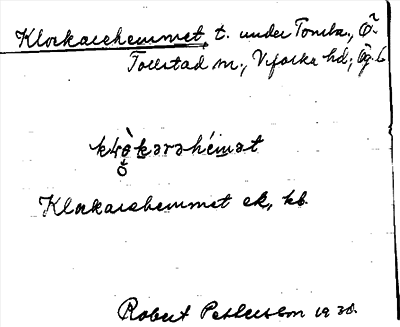 Klockarehemmet, t. under Tomta., Ö.
Tollstad sn., Vifolka hd., Ög. l.
kròkərəhém̲ət
Klockarehemmet ek, kb
Robert Pettersson 1930.